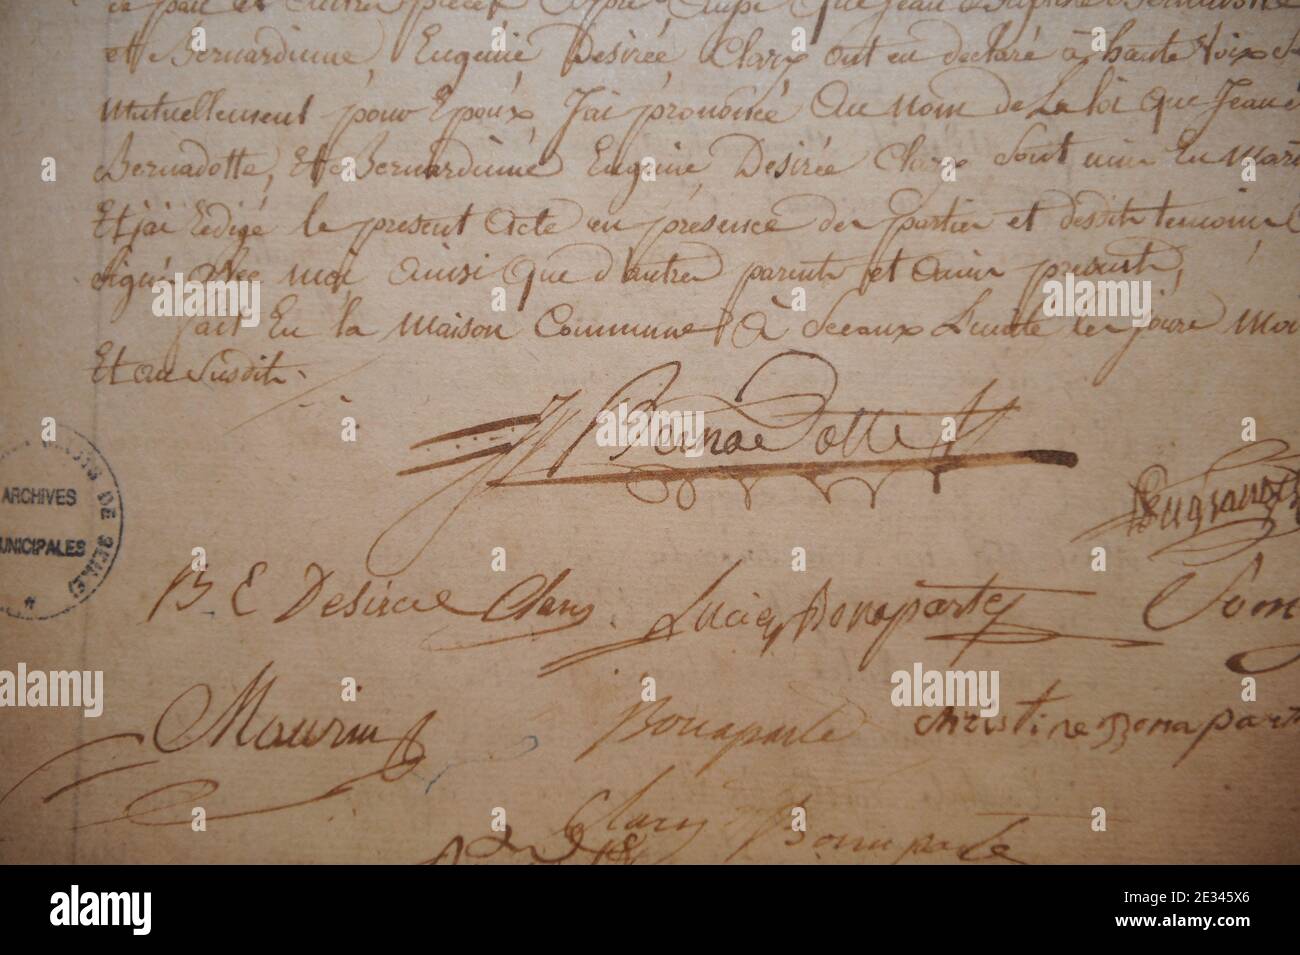 et Bernardinne, Eugenie Desirée Clary ont en declaré à haute Voix
Mutuellement pour Epoux J'ai prononcé Au Nom de La loi que Jean
Bernadotte, Et Bernardinne Eugenie Desirée Clary sont unis En Mari
Et j'ai rédigé le present Acte en presence des parties et desdits temoins
signé avec moi ainsi que d'autres parents et amis presents,
fait En la Maison Commune à Sceaux L'unité les jours Mois
Et an Susdits.
J Bernadotte
ARCHIVES
MUNICIPALES
B E Desiree Clary Lucien Bonaparte
Maurin Bonaparte Christine Bonaparte
Clary Bonaparte
alamy
Image ID: 2E345X6
www.alamy.com